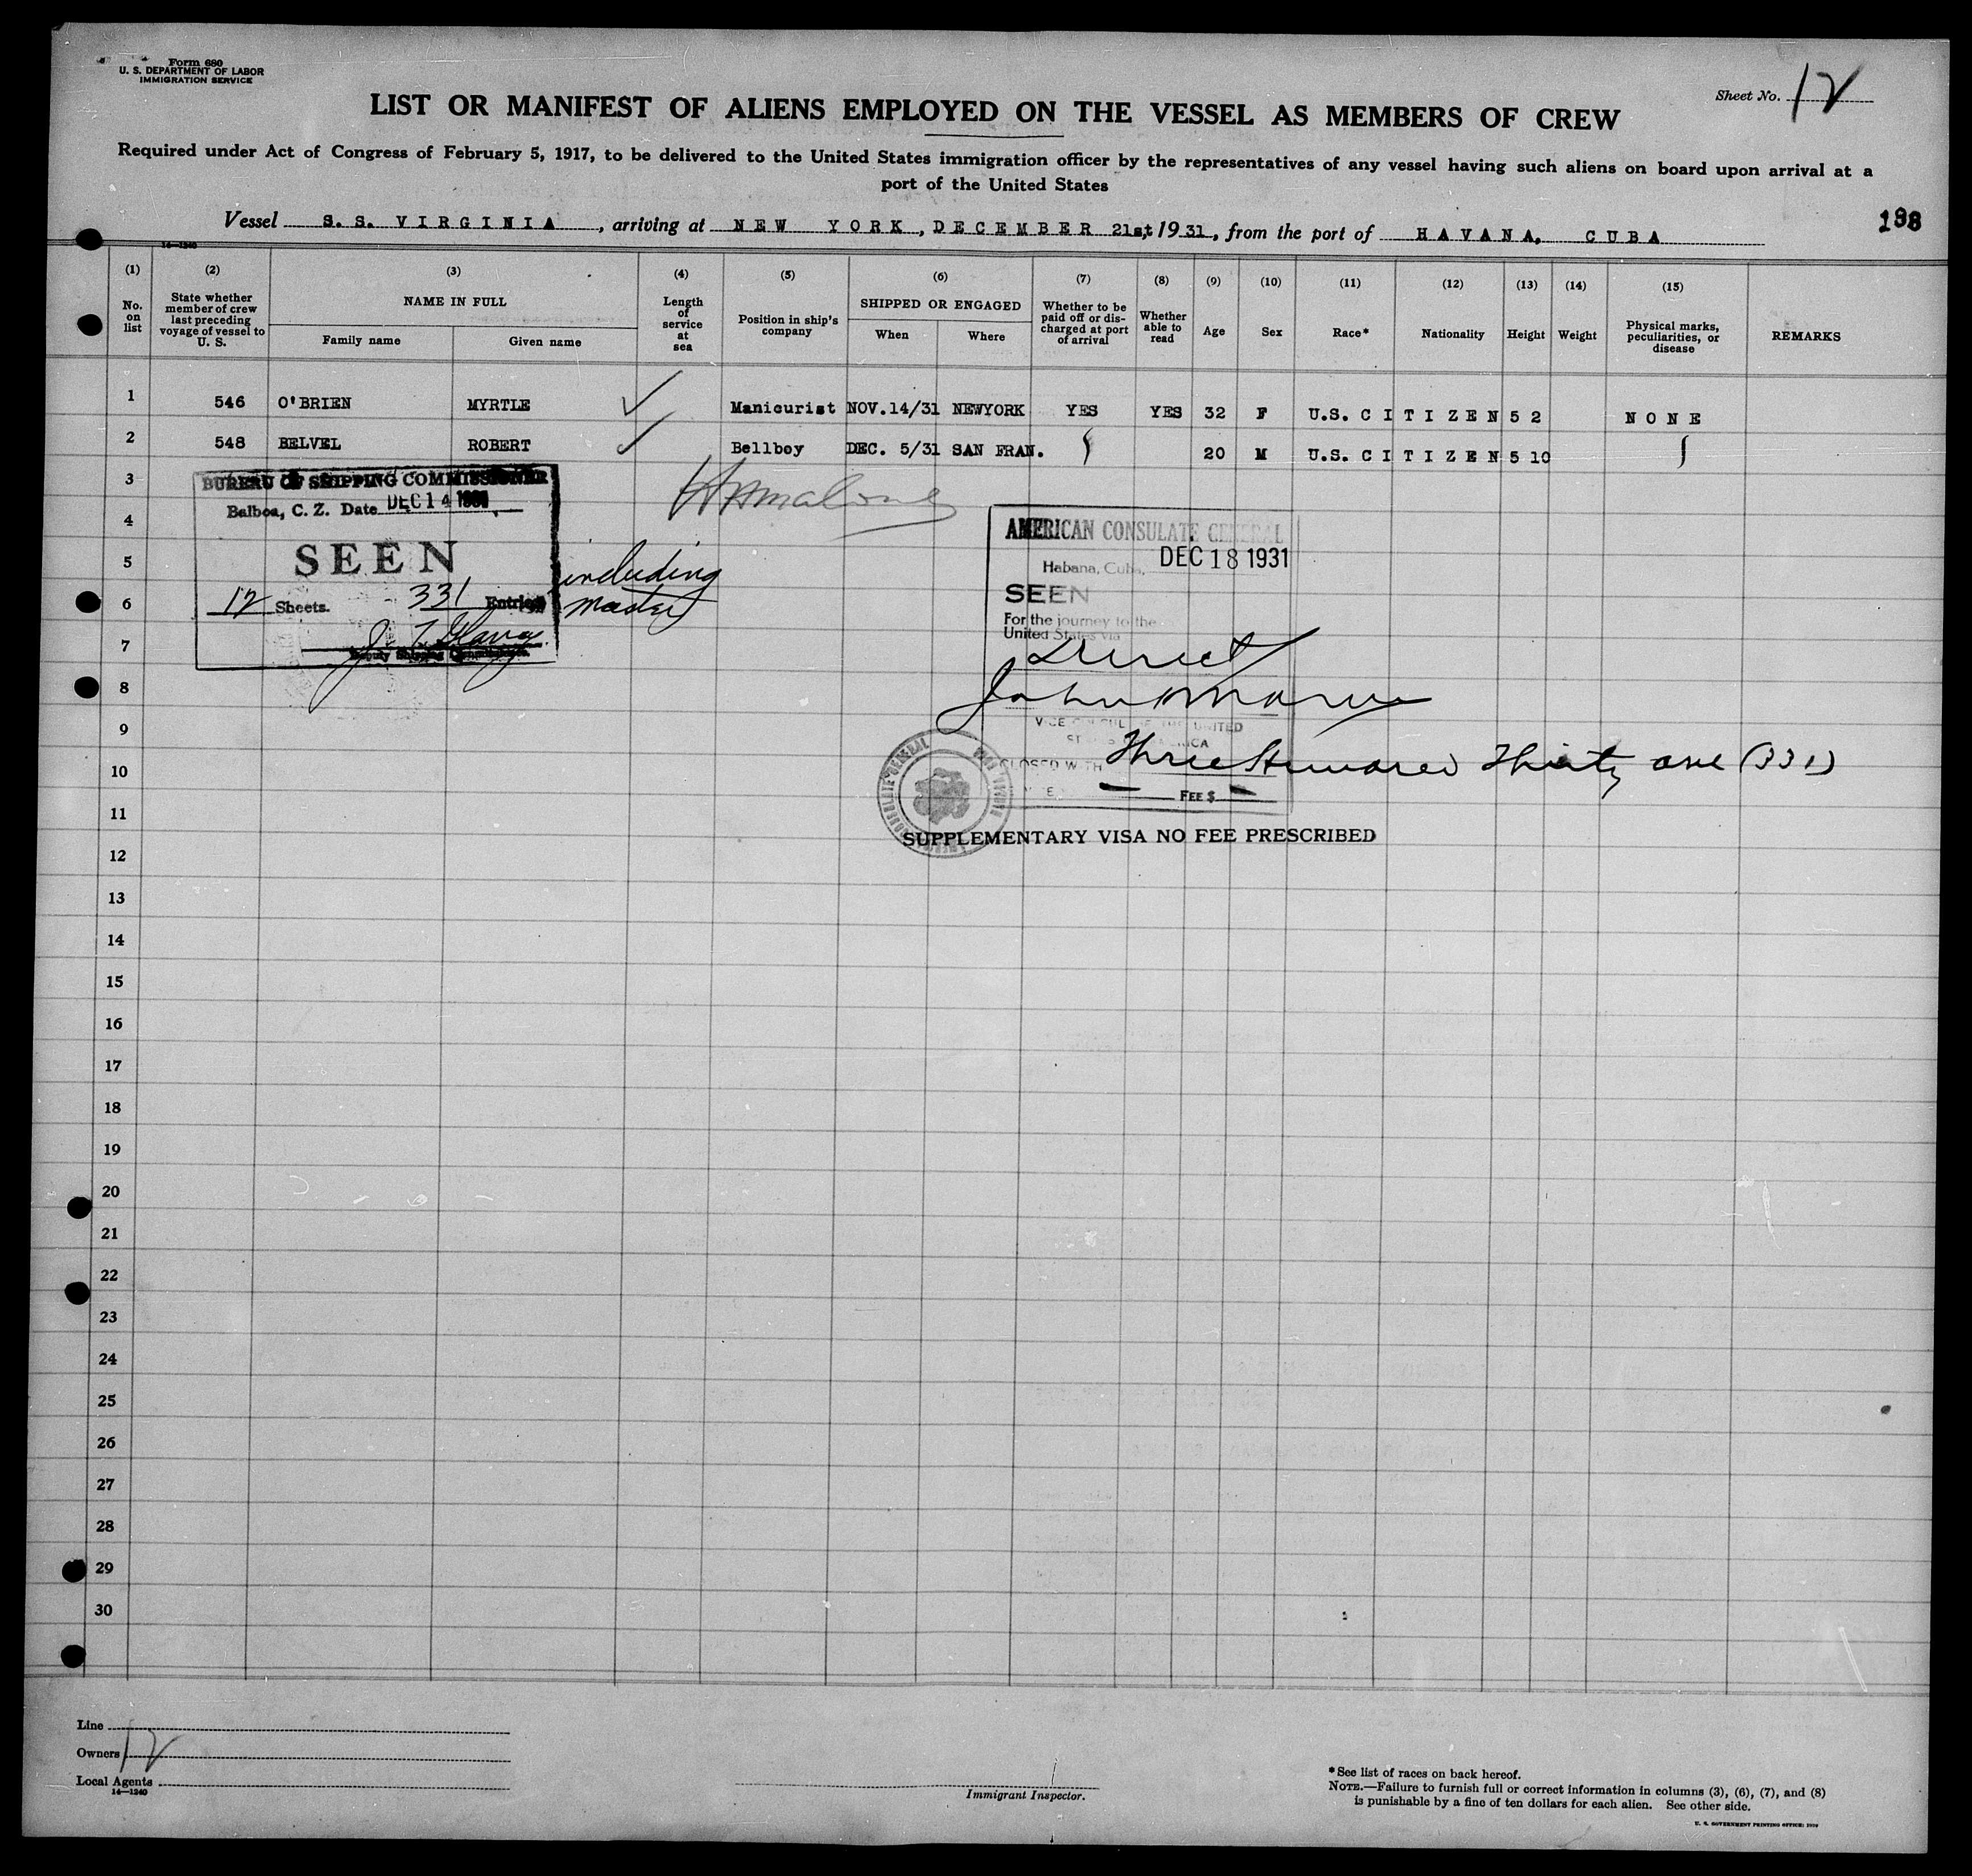 Form 680
U. S. DEPARTMENT OF LABOR
IMMIGRATION SERVICE
Sheet No. 12
LIST OR MANIFEST OF ALIENS EMPLOYED ON THE VESSEL AS MEMBERS OF CREW
Required under Act of Congress of February 5, 1917, to be delivered to the United States immigration officer by the representatives of any vessel having such aliens on board upon arrival at a
port of the United States
Vessel S. S. VIRGINIA, arriving at NEW YORK, DECEMBER 21st, 1931, from the port of HAVANA, CUBA
14—1240
(1) (2) (3) (4) (5) (6) (7) (8) (9) (10) (11) (12) (13) (14) (15)
No. on list
State whether member of crew last preceding voyage of vessel to U. S.
NAME IN FULL
Family name
Given name
Length of service at sea
Position in ship's company
SHIPPED OR ENGAGED
When
Where
Whether to be paid off or discharged at port of arrival
Whether able to read
Age
Sex
Race*
Nationality
Height
Weight
Physical marks, peculiarities, or disease
REMARKS
1 546 O'BRIEN MYRTLE ✓ Manicurist NOV.14/31 NEWYORK YES YES 32 F U.S. CITIZEN 5 2 NONE
2 548 BELVEL ROBERT ✓ Bellboy DEC. 5/31 SAN FRAN. 20 M U.S. CITIZEN 5 10
3
4
5
6
7
8
9
10
11
12
13
14
15
16
17
18
19
20
21
22
23
24
25
26
27
28
29
30
BUREAU OF SHIPPING COMMISSIONER
Balboa, C. Z. Date DEC 14
SEEN
12 Sheets. 331 Entries
including
master
Deputy Shipping Commissioner.
AMERICAN CONSULATE GENERAL
DEC 18 1931
Habana, Cuba,
SEEN
For the journey to the
United States via
Direct
VICE CONSUL OF THE UNITED
STATES OF AMERICA
CLOSED WITH Three Hundred Thirty one (331)
FEE $
SUPPLEMENTARY VISA NO FEE PRESCRIBED
Line
Owners 12
Local Agents
14—1240
Immigrant Inspector.
*See list of races on back hereof.
NOTE.—Failure to furnish full or correct information in columns (3), (6), (7), and (8)
is punishable by a fine of ten dollars for each alien. See other side.